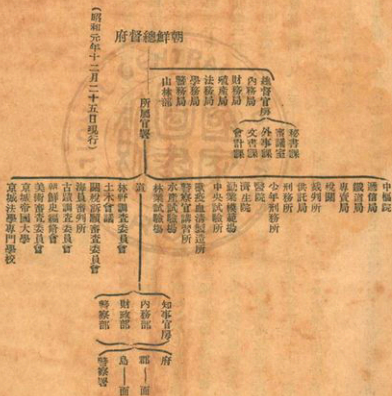 朝鮮總督府
(昭和元年十二月二十五日現行)
總督官房
秘書課
審議室
外事課
文書課
會計課
內務局
財務局
殖產局
法務局
學務局
警務局
山林部
所屬官署
中樞院
遞信局
鐵道局
專賣局
稅關
裁判所
供託局
刑務所
少年刑務所
醫院
濟生院
勸業模範場
中央試驗所
獸疫血清製造所
警察官講習所
水產試驗場
林業試驗場
道
林野調查委員會
土木會議
關稅訴願審查委員會
海員審判所
古蹟調查委員會
朝鮮史編修會
美術審查委員會
京城帝國大學
京城法學專門學校
知事官房
內務部
財務部
警察部
府
郡—面
島—面
警察署